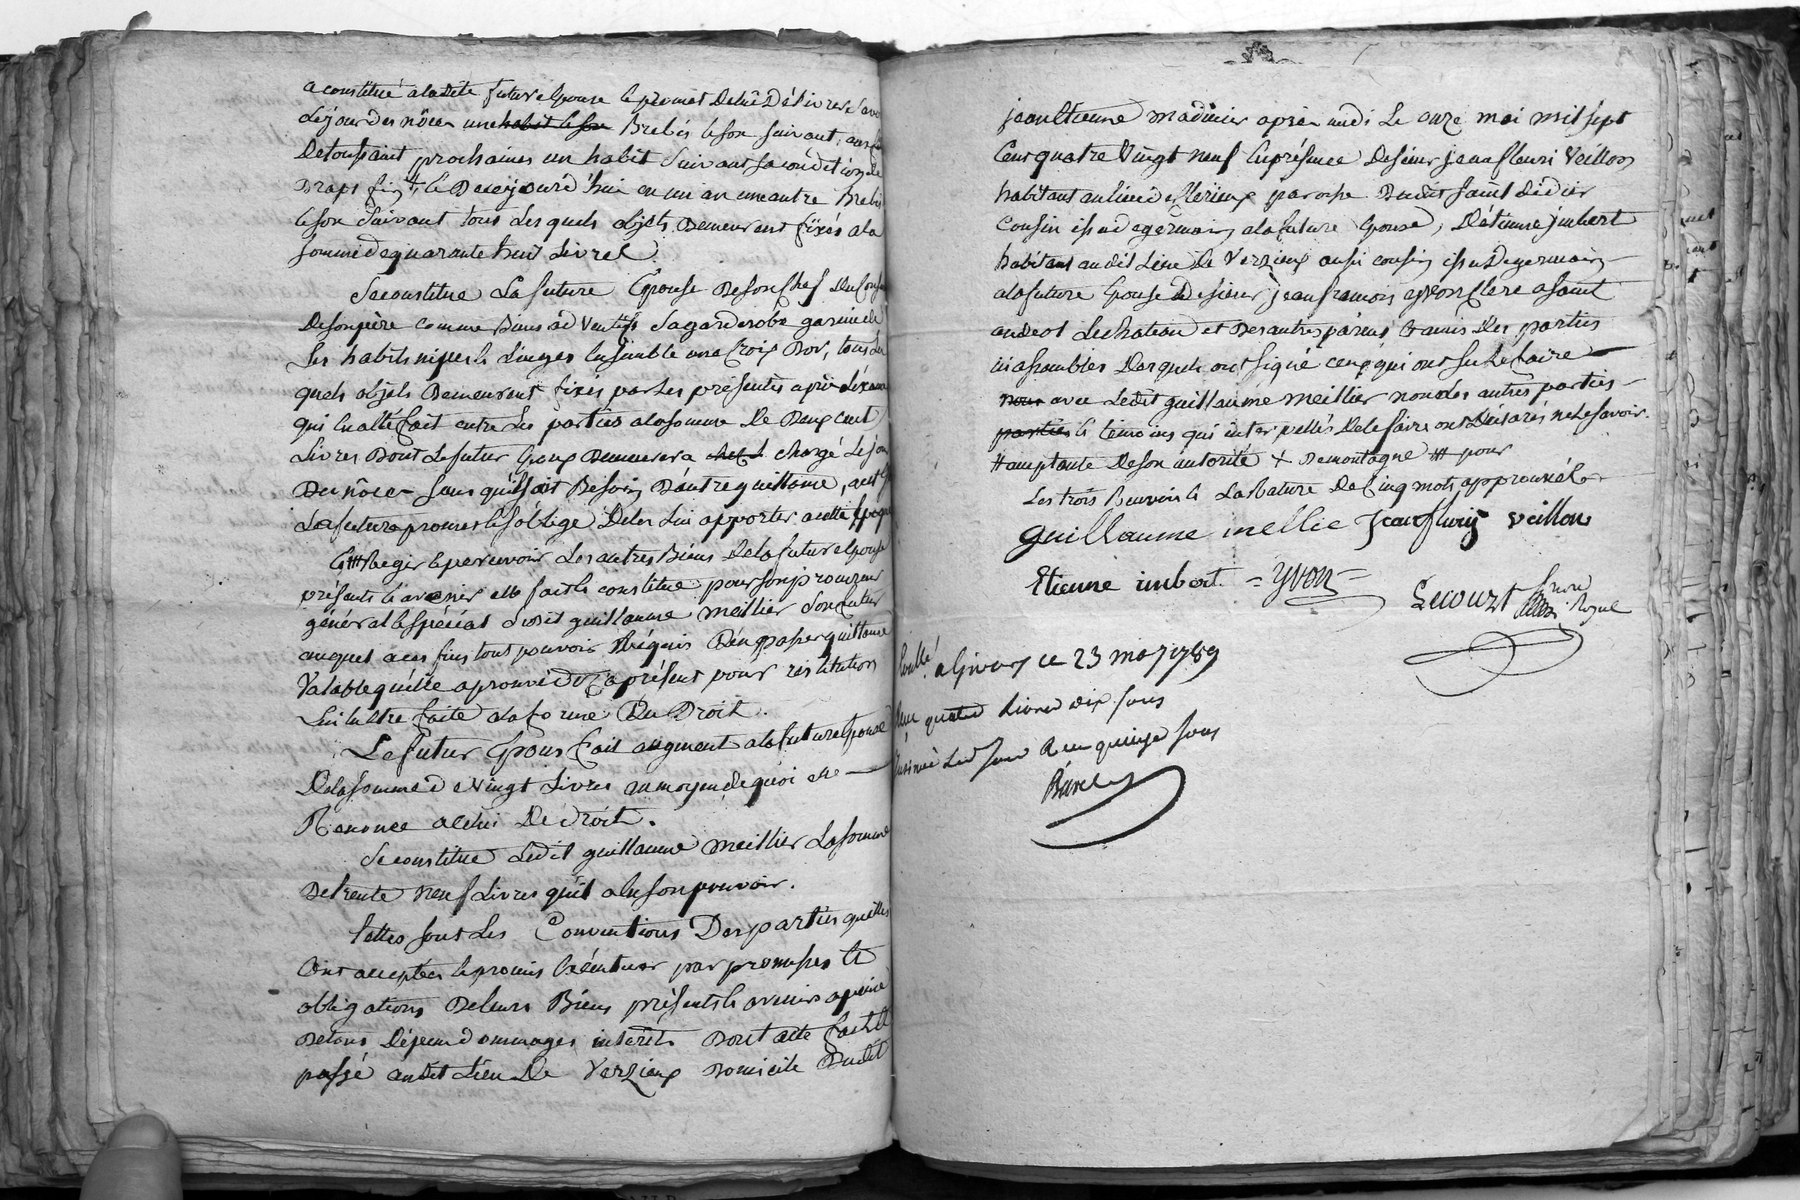 a constitué a ladite future Epouse le promet de lui délivrer savoir
Le jour des nôces une habit le son Brebis le son suivant, aux fêtes
De toussaint prochaines un habit suivant sa condition de
Draps fin, # le De ce jourd'hui en un an une autre Brebis
le son suivant tous Lesquels objets Demeurent fixés a la
somme de quarante huit Livres.
Se constitue La future Epouse de son Chef Du Consent
De son père comme Biens adventifs sa garderobe garnie de
ses habits nipes & Linges Ensemble une Croix D'or, tous Les
quels objets Demeurent fixés par Les présentes après L'éxamen
qui En a été fait entre Les parties a la somme De Deux cent
Livres Dont Le futur Epoux Demeurera chargé Le jour
Des nôces sans qu'il soit Besoin D'autre quittance, aux
La future promet & s'oblige De les lui apporter a cette époque
Et # Regir & percevoir Les autres Biens De la future Epouse
présents & avenir elle fait & constitue pour son procureur
général & spécial Ledit guillaume meillier son futur
auquel a ces fins tous pouvoirs Réquis D'en passer quittance
Valable qu'elle aprouve dez a présent pour restitution
Lui En être faite a la forme Du Droit.
Le futur Epoux fait augment a la future Epouse
De la somme de Vingt Livres au moyen de quoi elle
Renonce a celui De droit.
Se constitue Ledit guillaume meillier La somme
De trente neuf Livres qu'il a En son pouvoir.
telles sont Les Conventions Des parties qu'elles
Ont acceptées & promis Exécuter par promesses &
obligations De leurs Biens présents & avenirs a peine
De tous Dépens dommages interêts Dont acte fait &
passé audit Lieu De Verzieux Domicile Dudit
jean Etienne madinier après midi Le onze mai mil sept
Cent quatre Vingt neuf En présence De sieur jean fleuri Veillon
habitant au lieu de paroisse Dudit saint didier
Cousin issu de germain a la future Epouse, D'etienne jmbert
habitant audit Lieu De Verzieux aussi cousin issu De germain
a la future Epouse De sieur jean francois yvon Clerc a saint
andeol Le chateau et Des autres parens & amis Des parties
ici assemblés Desquels ont signé ceux qui ont su Le faire
nous avec Ledit guillaume meillier non Les autres parties
parties & temoins qui interpellés De le faire ont Déclarés ne Le savoir
# acceptante De son autorité + De montagne ## pour
Les trois Renvois & La Rature De Cinq mots approuvés
guillaume mellie Jean fleury veillon
Etienne imbert = yvon = Lecourt
Royal
Controllé a Givors ce 23 may 1789
Reçu quatre livres dix sous
Insinué Led jour Reçu quinze sous